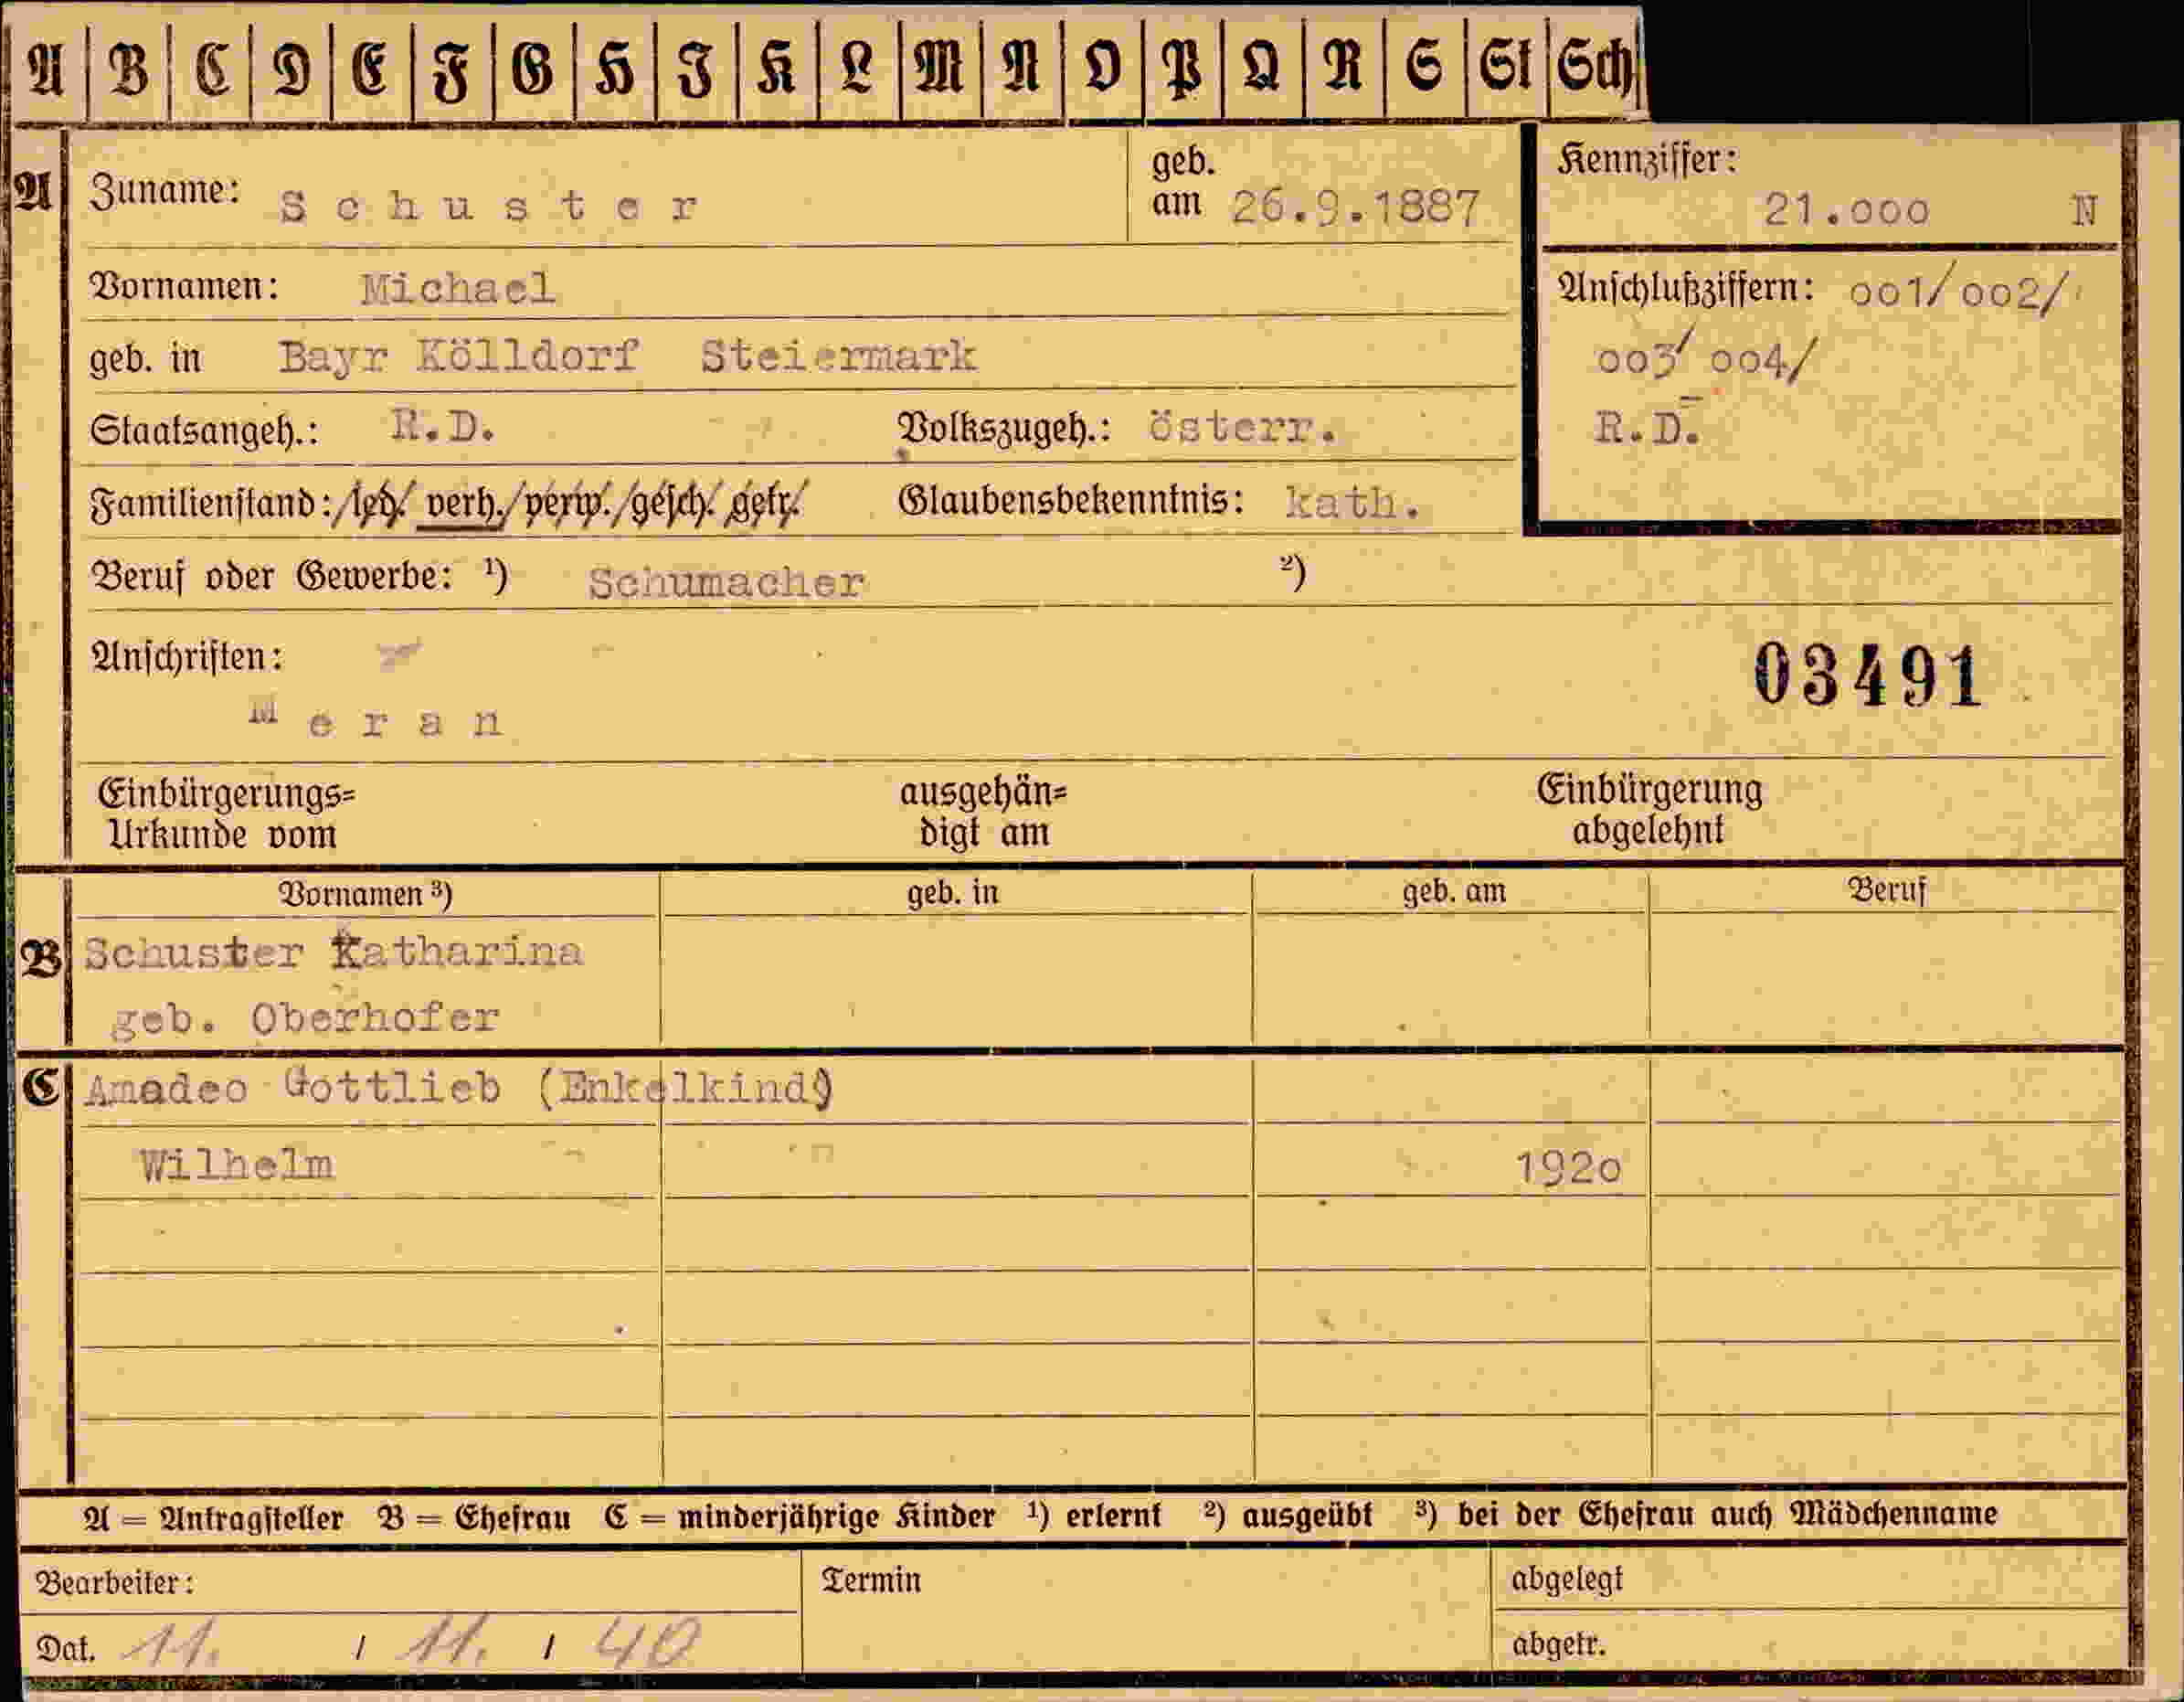 A B C D E F G H I K L M N O P Q R S St Sch
A Zuname: Schuster geb. am 26.9.1887 Kennziffer: 21.000 N
Vornamen: Michael Anschlußziffern: 001/002/
geb. in Bayr Kölldorf Steiermark 003/ 004/
Staatsangeh.: R.D. Volkszugeh.: österr. R.D.
Familienstand: /led./ verh./verw./gesch./getr./ Glaubensbekenntnis: kath.
Beruf oder Gewerbe: ¹) Schumacher ²)
Anschriften: 03491
Meran
Einbürgerungs= ausgehän= Einbürgerung
Urkunde vom digt am abgelehnt
Vornamen ³) geb. in geb. am Beruf
B Schuster Katharina
geb. Oberhofer
C Amadeo Gottlieb (Enkelkind)
Wilhelm 1920
A = Antragsteller B = Ehefrau C = minderjährige Kinder ¹) erlernt ²) ausgeübt ³) bei der Ehefrau auch Mädchenname
Bearbeiter: Termin abgelegt
Dat. 11. / 11. / 40 abgetr.